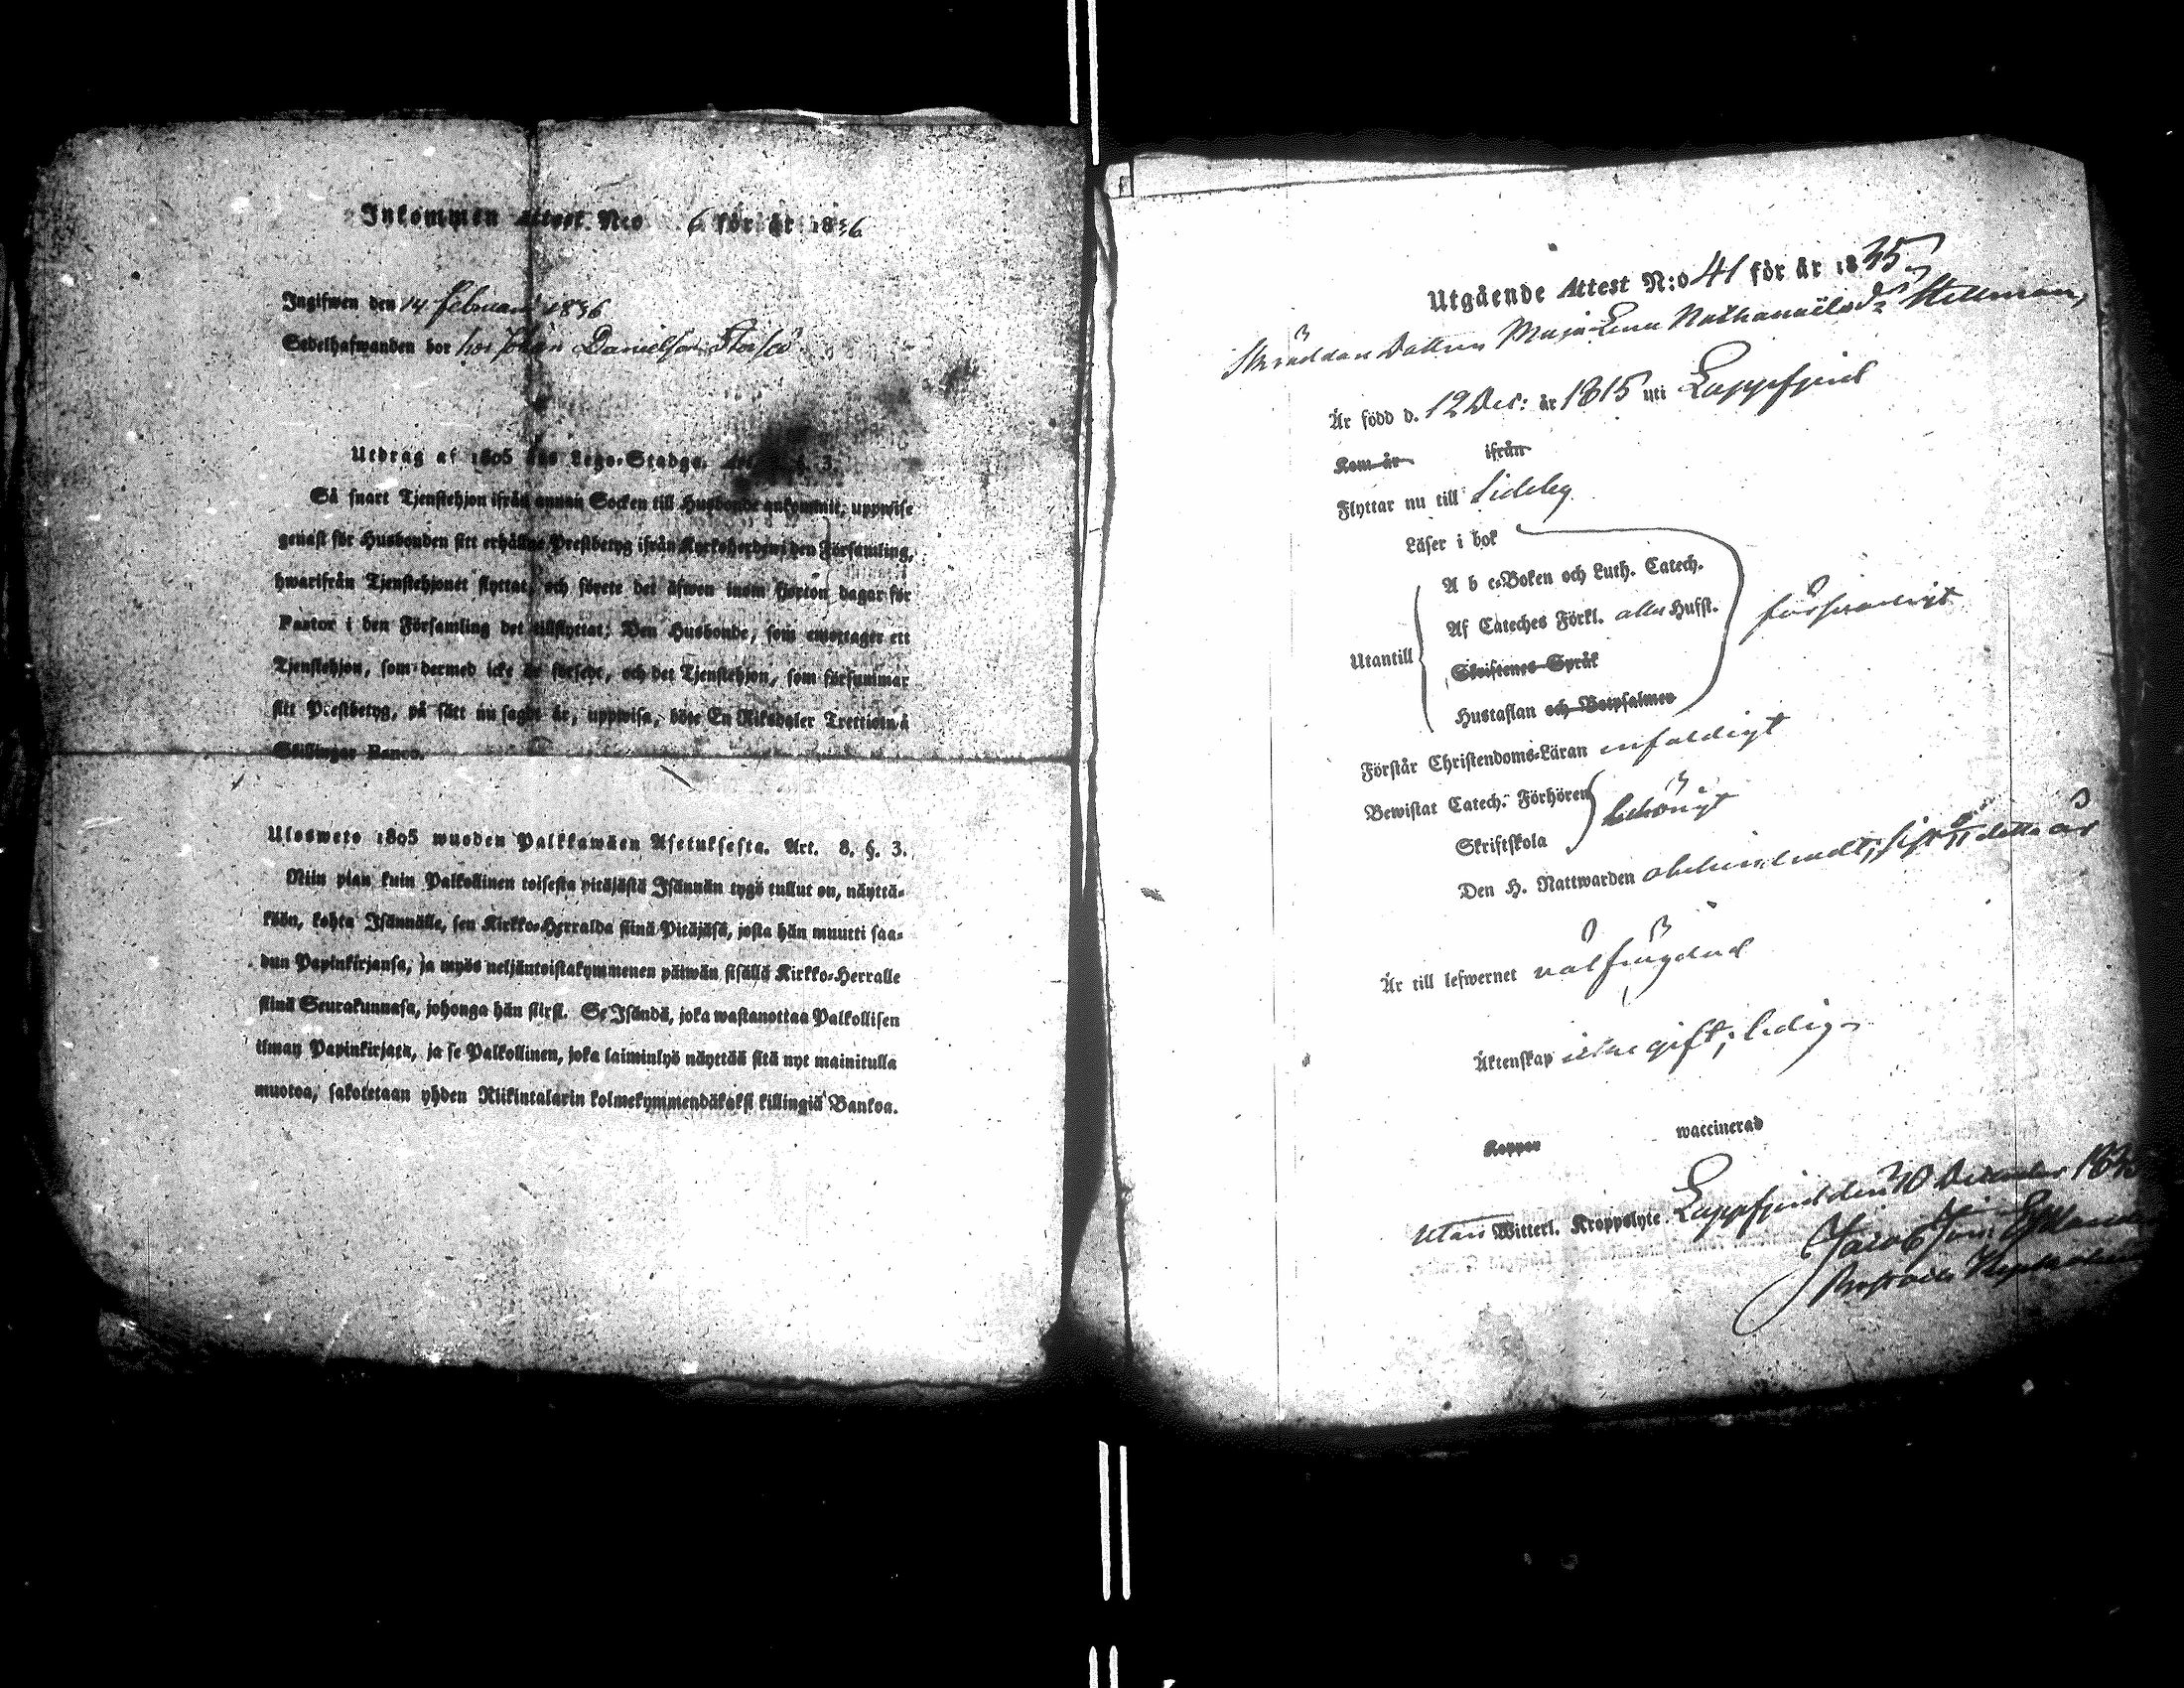 Inkommen Attest N:o 6 för år 1836
Ingifwen den 14 Februari 1836
Sedelhafwanden bor hos Johan Danielson Storsö
Utdrag af 1805 års Lego-Stadga. §. 3.
Så snart Tjenstehjon ifrån annan Socken till Husbonde ankommit, uppwise
genast för Husbonden sitt erhållne Prestbetyg ifrån Kyrkoherden i den Församling,
hwarifrån Tjenstehjonet flyttat, och förete det äfwen inom fjorton dagar för
Pastor i den Församling det tillflyttat; Den Husbonde, som emottager ett
Tjenstehjon, som dermed icke är försedt, och det Tjenstehjon, som försummar
sitt Prestbetyg, på sätt nu sagt är, uppwisa, böte En Riksdaler Trettiotwå
Skillingar Banco.
Ulosweto 1805 wuoden Palkkawäen Asetuksesta. Art. 8. §. 3.
Niin pian kuin Palkollinen toisesta pitäjästä Isännän tygö tullut on, näyttä-
köön, kohta Isännälle, sen Kirkko-Herralda siinä Pitäjäsä, josta hän muutti saa-
dun Papinkirjansa, ja myös neljäntoistakymmenen päiwän sisällä Kirkko-Herralle
siinä Seurakunnasa, johonga hän siirsi. Se Isändä, joka wastanottaa Palkollisen
ilman Papinkirjata, ja se Palkollinen, joka laiminlyö näyttää sitä nyt mainitulla
muotoa, sakotetaan yhden Riikintalarin kolmekymmendäkaksi killingiä Bankoa.
Utgående Attest N:o 41 för år 1835.
Skräddare Dottren Maja Lena Nathanaëls dr Stellman,
Är född d. 12 Dec: år 1815 uti Lappfjerd
Kom år ifrån
Flyttar nu till Sideby
Läser i bok
A b c-Boken och Luth. Catech.
Af Cateches Förkl. alla Hufst. försvarligt
Utantill
Skriftenes Språk
Hustaflan och Botpsalmer
Förstår Christendoms-Läran enfaldigt
Bewistat Catech. Förhören behörigt
Skriftskola
Den H. Nattwarden detta år
Är till lefwernet välfrägdad
Äktenskap icke gift; ledig
Koppor waccinerad
Utan Witterl. Kroppslyte. Lappfjerd den 30 December
Jacob